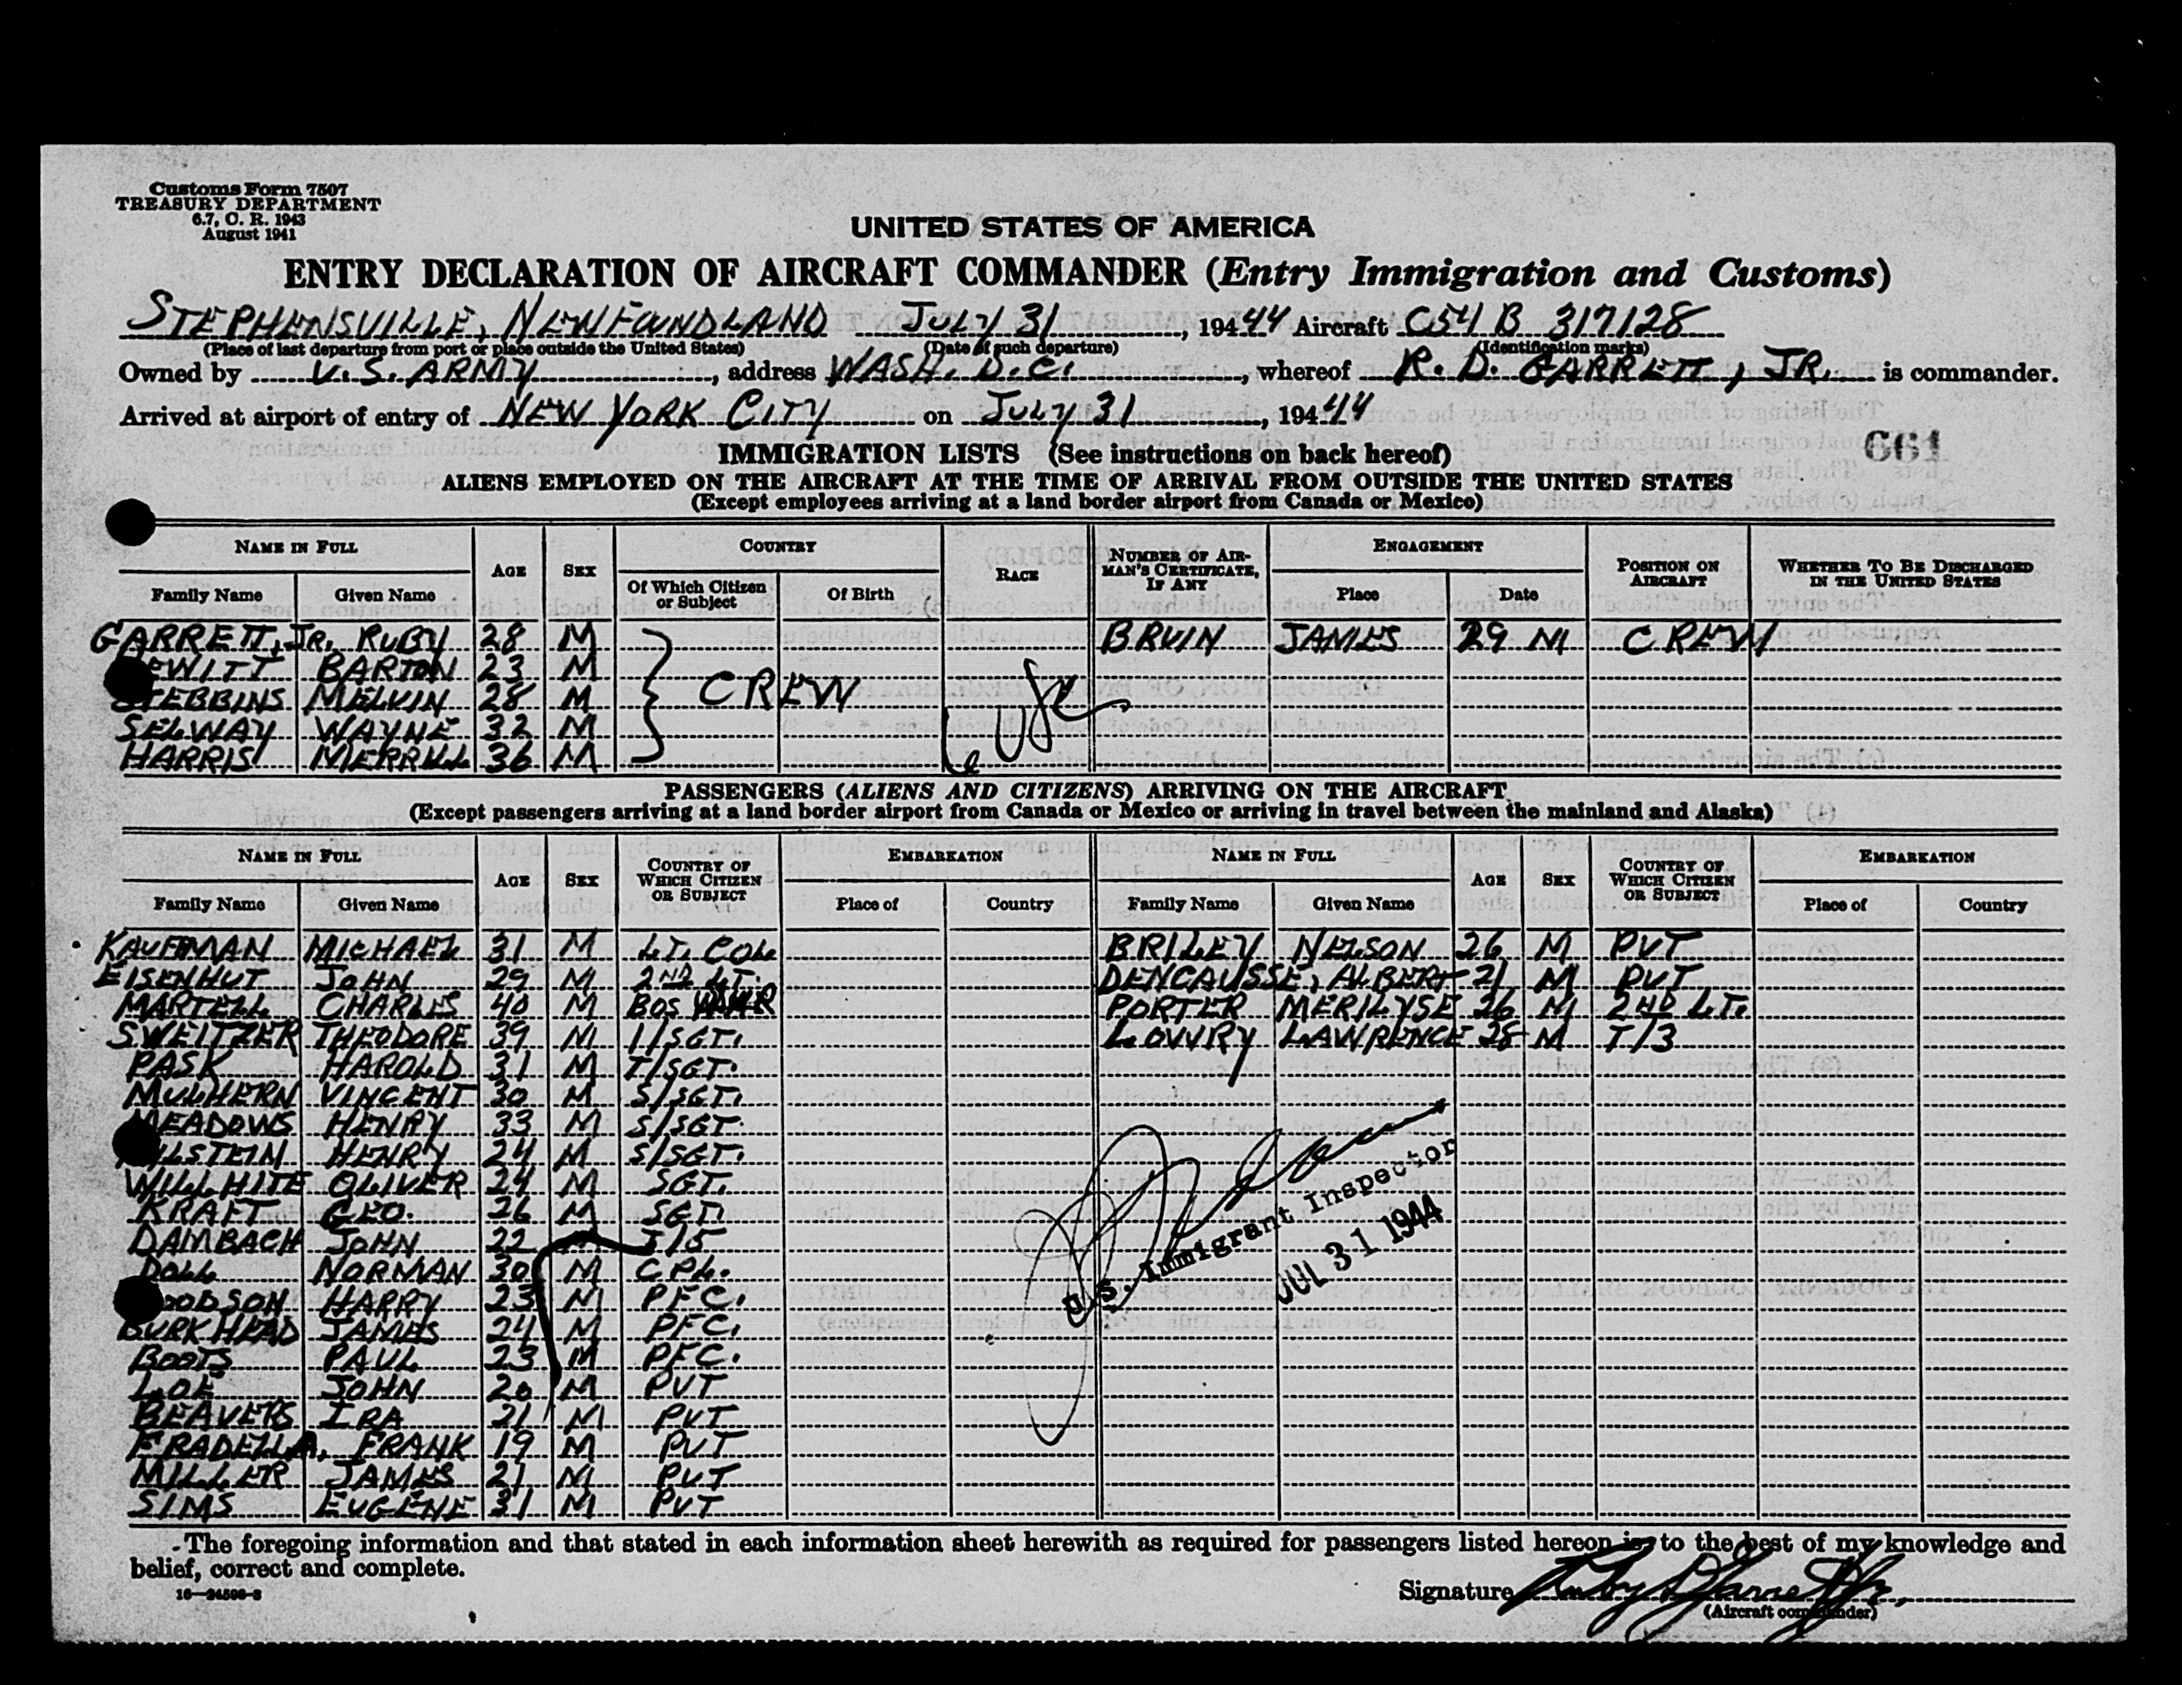 Customs Form 7507
TREASURY DEPARTMENT
6.7, C. R. 1943
August 1941
UNITED STATES OF AMERICA
ENTRY DECLARATION OF AIRCRAFT COMMANDER (Entry Immigration and Customs)
STEPHENSVILLE, NEWFOUNDLAND JULY 31, 194 44 Aircraft C54 B 317128
(Place of last departure from port or place outside the United States) (Date of such departure) (Identification marks)
Owned by U.S. ARMY, address WASH. D.C., whereof R. D. GARRETT, JR. is commander.
Arrived at airport of entry of NEW YORK CITY on JULY 31, 194 44
661
IMMIGRATION LISTS (See instructions on back hereof)
ALIENS EMPLOYED ON THE AIRCRAFT AT THE TIME OF ARRIVAL FROM OUTSIDE THE UNITED STATES
(Except employees arriving at a land border airport from Canada or Mexico)
NAME IN FULL AGE SEX COUNTRY RACE NUMBER OF AIRMAN'S CERTIFICATE, IF ANY ENGAGEMENT POSITION ON AIRCRAFT WHETHER TO BE DISCHARGED IN THE UNITED STATES
Family Name Given Name Of Which Citizen or Subject Of Birth Place Date
GARRETT, JR. RUBY 28 M BRUIN JAMES 29 M CREW
EWITT BARTON 23 M
STEBBINS MELVIN 28 M CREW
SELWAY WAYNE 32 M
HARRIS MERRILL 36 M
PASSENGERS (ALIENS AND CITIZENS) ARRIVING ON THE AIRCRAFT
(Except passengers arriving at a land border airport from Canada or Mexico or arriving in travel between the mainland and Alaska)
NAME IN FULL AGE SEX COUNTRY OF WHICH CITIZEN OR SUBJECT EMBARKATION NAME IN FULL AGE SEX COUNTRY OF WHICH CITIZEN OR SUBJECT EMBARKATION
Family Name Given Name Place of Country Family Name Given Name Place of Country
KAUFMAN MICHAEL 31 M LT. COL BRILEY NELSON 26 M PVT
EISENHUT JOHN 29 M 2ND LT. DENCAUSSE, ALBERT 21 M PVT
MARTELL CHARLES 40 M BOS PORTER MERILYSE 26 M 2ND LT.
SWEITZER THEODORE 39 M 1/SGT. LOWRY LAWRENCE 28 M T/3
PASK HAROLD 31 M T/SGT.
MULHERN VINCENT 30 M S/SGT.
MEADOWS HENRY 33 M S/SGT.
ILSTEIN HENRY 24 M S/SGT.
WILLHITE OLIVER 24 M SGT.
KRAFT GEO. 26 M SGT.
DAMBACH JOHN 22 M T/5
DOLL NORMAN 30 M CPL.
OODSON HARRY 23 M PFC.
BURKHEAD JAMES 24 M PFC.
BOOTS PAUL 23 M PFC.
LOE JOHN 20 M PVT
BEAVERS IRA 21 M PVT
FRADELLA, FRANK 19 M PVT
MILLER JAMES 21 M PVT
SIMS EUGENE 31 M PVT
U.S. Immigrant Inspector
JUL 31 1944
The foregoing information and that stated in each information sheet herewith as required for passengers listed hereon is, to the best of my knowledge and
belief, correct and complete.
Signature Ruby D Garrett Jr.
(Aircraft commander)